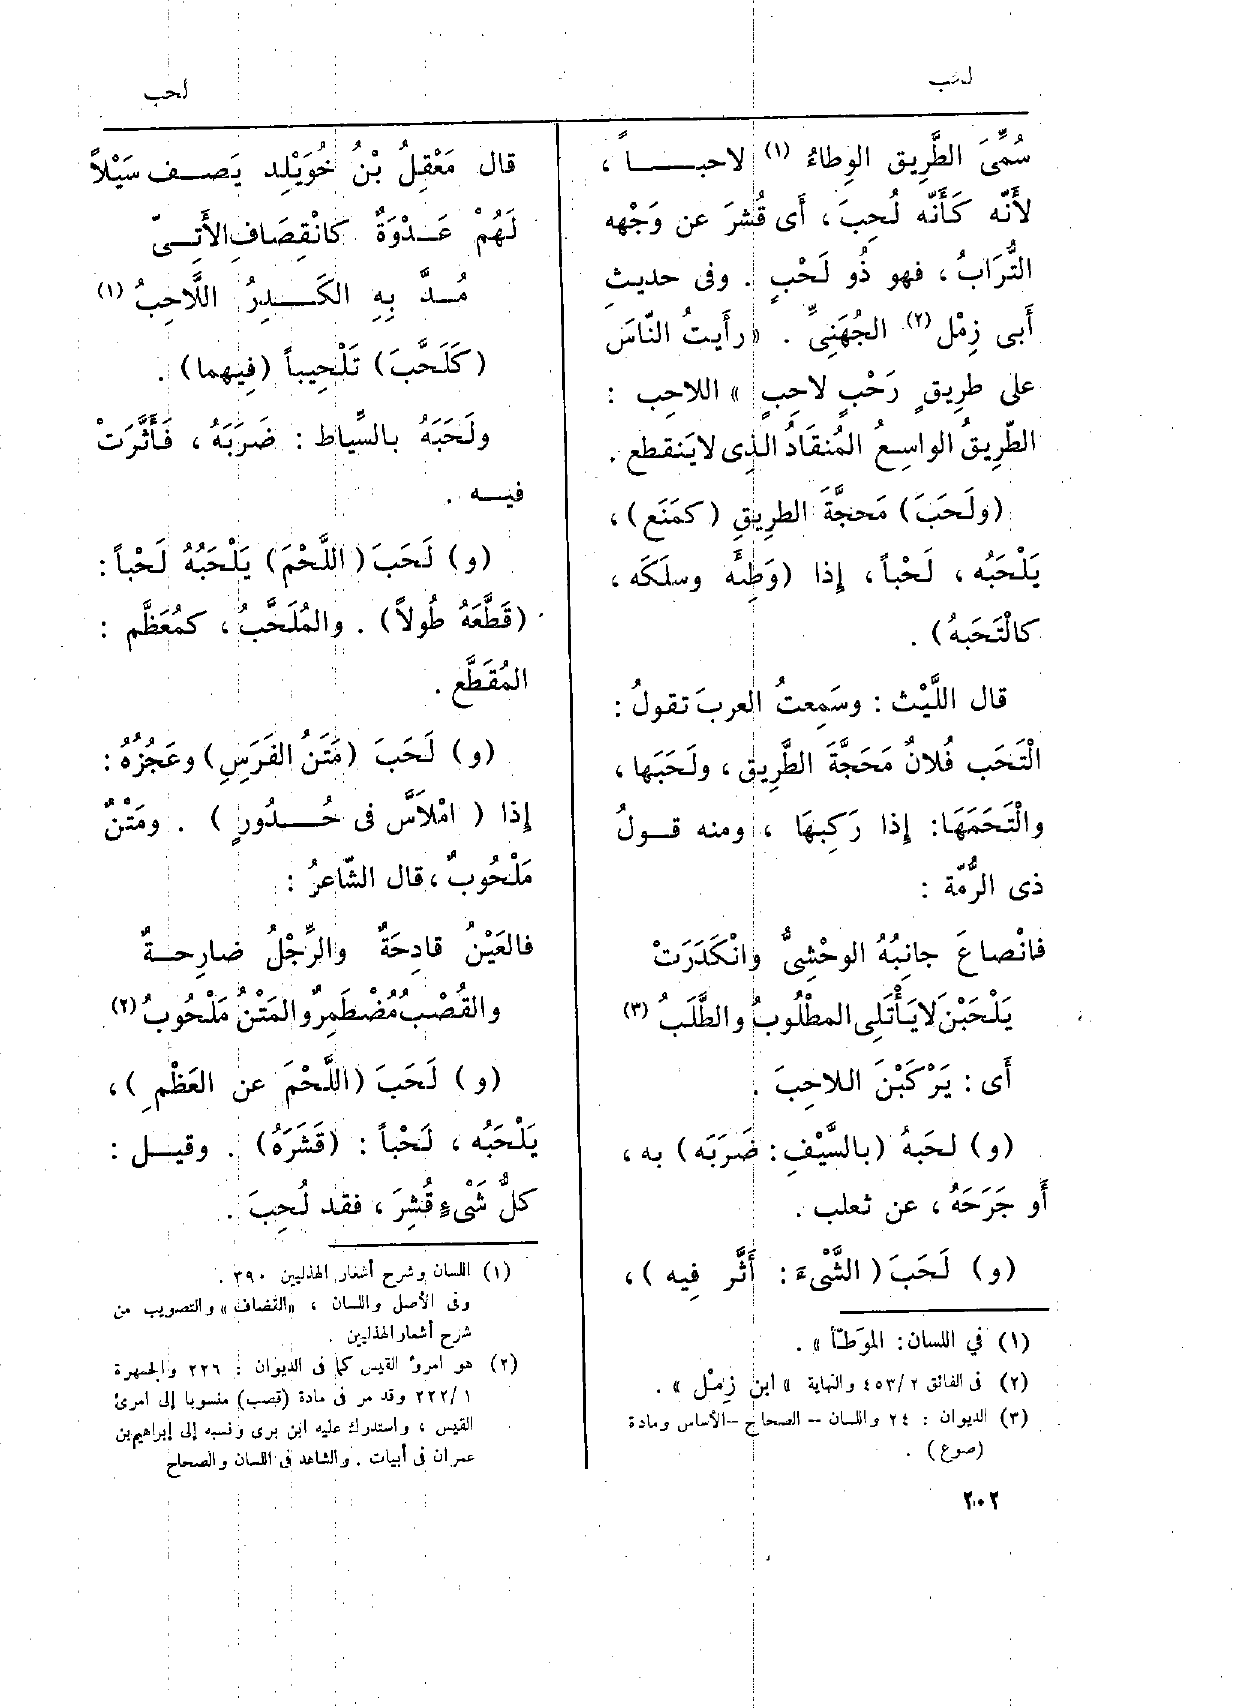 لحب
لحب
سُمِّىَ الطَّرِيق الوِطاءُ (١) لاحبـــاً ،
لأَنّه كَأَنّه لُحِبَ ، أَى قُشرَ عن وَجْهه
التُّرَابُ ، فهو ذُو لَحْبٍ . وفى حديثِ
أَبى زِمْل (٢) الجُهَنِىِّ . « رأَيتُ النّاسَ
على طرِيقٍ رَحْبٍ لاحِبٍ » اللاحِب :
الطّرِيقُ الواسِعُ المُنقَادُ الذِى لايَنقطع .
(ولَحَبَ) مَحجَّةَ الطرِيقِ (كمَنَع) ،
يَلْحَبُه ، لَحْباً ، إِذا (وَطِئَه وسلَكَه ،
كالْتَحَبهُ) .
قال اللَّيْث : وسَمِعتُ العربَ تقولُ :
الْتَحَب فُلانٌ مَحَجَّةَ الطَّرِيق ، ولَحَبَها ،
والْتَحَمَهَا: إِذا رَكِبهَا ، ومنه قــولُ
ذى الرُّمّة :
فانْصاعَ جانِبُهُ الوحْشِىُّ وانْكَدَرَتْ
يَلْحَبْنَ لايَأْتَلِى المطْلُوبُ والطَّلَبُ (٣)
أَى : يَرْكَبْنَ اللاحِبَ .
(و) لحَبهُ (بالسَّيْفِ : ضَرَبَه) به ،
أَو جَرَحَهُ ، عن ثعلب .
(و) لَحَبَ (الشَّىْءَ : أَثَّر فِيه) ،
(١) في اللسان : المُوَطَّأ » .
(٢) فى الفائق ٤٥٣/٢ والنهاية « ابن زِمْل » .
(٣) الديوان : ٢٤ واللسان – الصحاح –الأساس ومادة
(صوع) .
٢٠٢
قال مَعْقِلُ بْنُ خُوَيْلِد يَصـف سَيْلاً
لَهُمْ عَــدْوَةٌ كانْقِصَافِ الأَتِــىّ
مُــدَّ بِهِ الكَــدِرُ اللَّاحِبُ (١)
(كَلَحَّبَ) تَلْحِيباً (فِيهما) .
ولَحَبَهُ بالسِّياط : ضَرَبَهُ ، فَأَثَّرَتْ
فيــه .
(و) لَحَبَ (اللَّحْمَ) يَلْحَبُهُ لَحْباً :
(قَطَّعَهُ طُولاً) . والمُلَحَّبُ ، كمُعَظَّم :
المُقَطَّع .
(و) لَحَبَ (مَتَنُ الفَرَسِ) وعَجُزُهُ :
إِذا ( امْلاَسَّ فى حُــدُورٍ ) . ومَتْنٌ
مَلْحُوبٌ ، قال الشّاعرُ :
فالعَيْنُ قادِحَةٌ والرِّجْلُ ضارِحــةٌ
والقُصْبُ مُضْطَمِرٌ والمَتْنُ مَلْحُوبُ (٢)
(و) لَحَبَ (اللَّحْمَ عن العَظْمِ ) ،
يَلْحَبُه ، لَحْباً : (قَشَرَهُ) . وقيــل :
كلُّ شَىْءٍ قُشِرَ ، فقد لُحِبَ .
(١) اللسان وشرح أشعار الهذليين ٣٩٠ .
وفى الأصل واللسان ، «القضاف» والتصويب من
شرح أشعار الهذليين .
(٢) هو امرؤ القيس كما فى الديوان : ٢٢٦ والجمهرة
٢٢٢/١ وقد مر فى مادة (قصب) منسوبا إلى امرئ
القيس ، واستدرك عليه ابن برى ونسبه إلى إبراهيم بن
عمران فى أبيات . والشاهد فى اللسان والصحاح